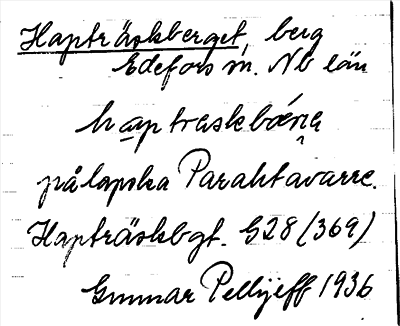 Hapträskberget, berg
Edefors sn. Nb län
haptraskbǽrıa
på lapska Parahtavarre.
Hapträskbgt. G28 (369)
Gunnar Pellijeff 1936